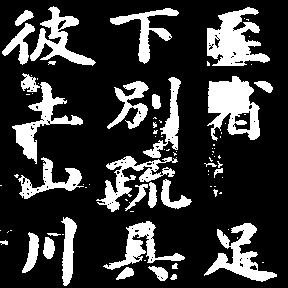 至省足
下別疏具
彼土山川